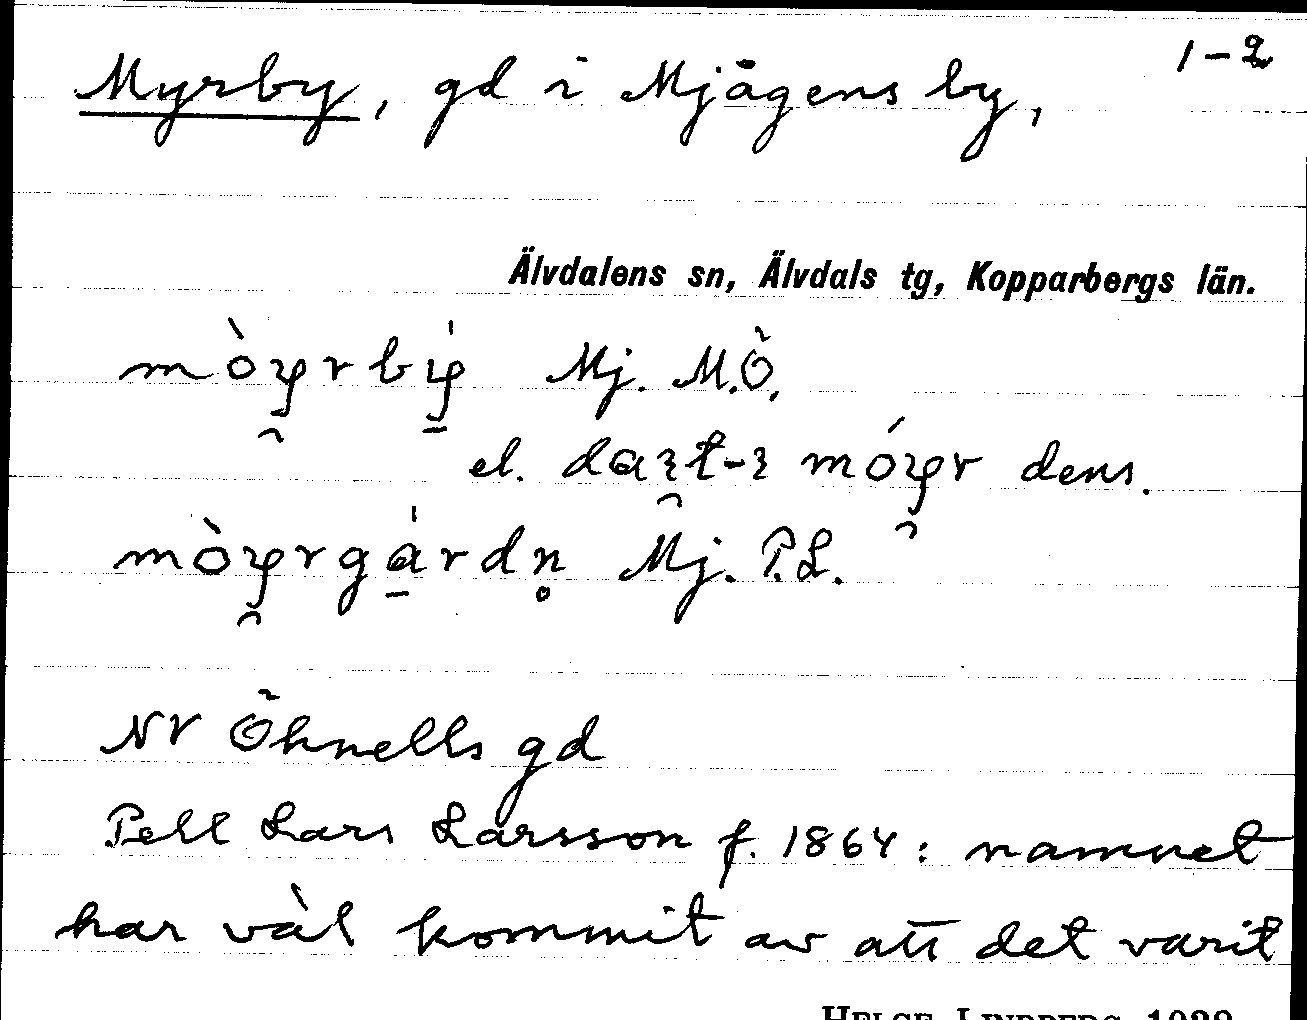 1-2
Myrby, gd i Mjågens by,
Älvdalens sn, Älvdals tg, Kopparbergs län.
Mj. M.Ö.
el. dens.
Mj. P.L.
NV Öhnells gd
Pell Lars Larsson f. 1864: namnet
har väl kommit av att det varit
HELGE LINDBERG